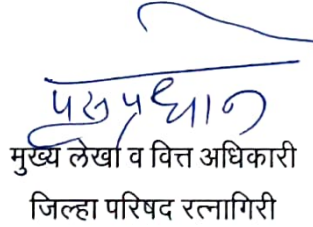 मुख्य लेखा व वित्त अधिकारी
जिल्हा परिषद रत्नागिरी